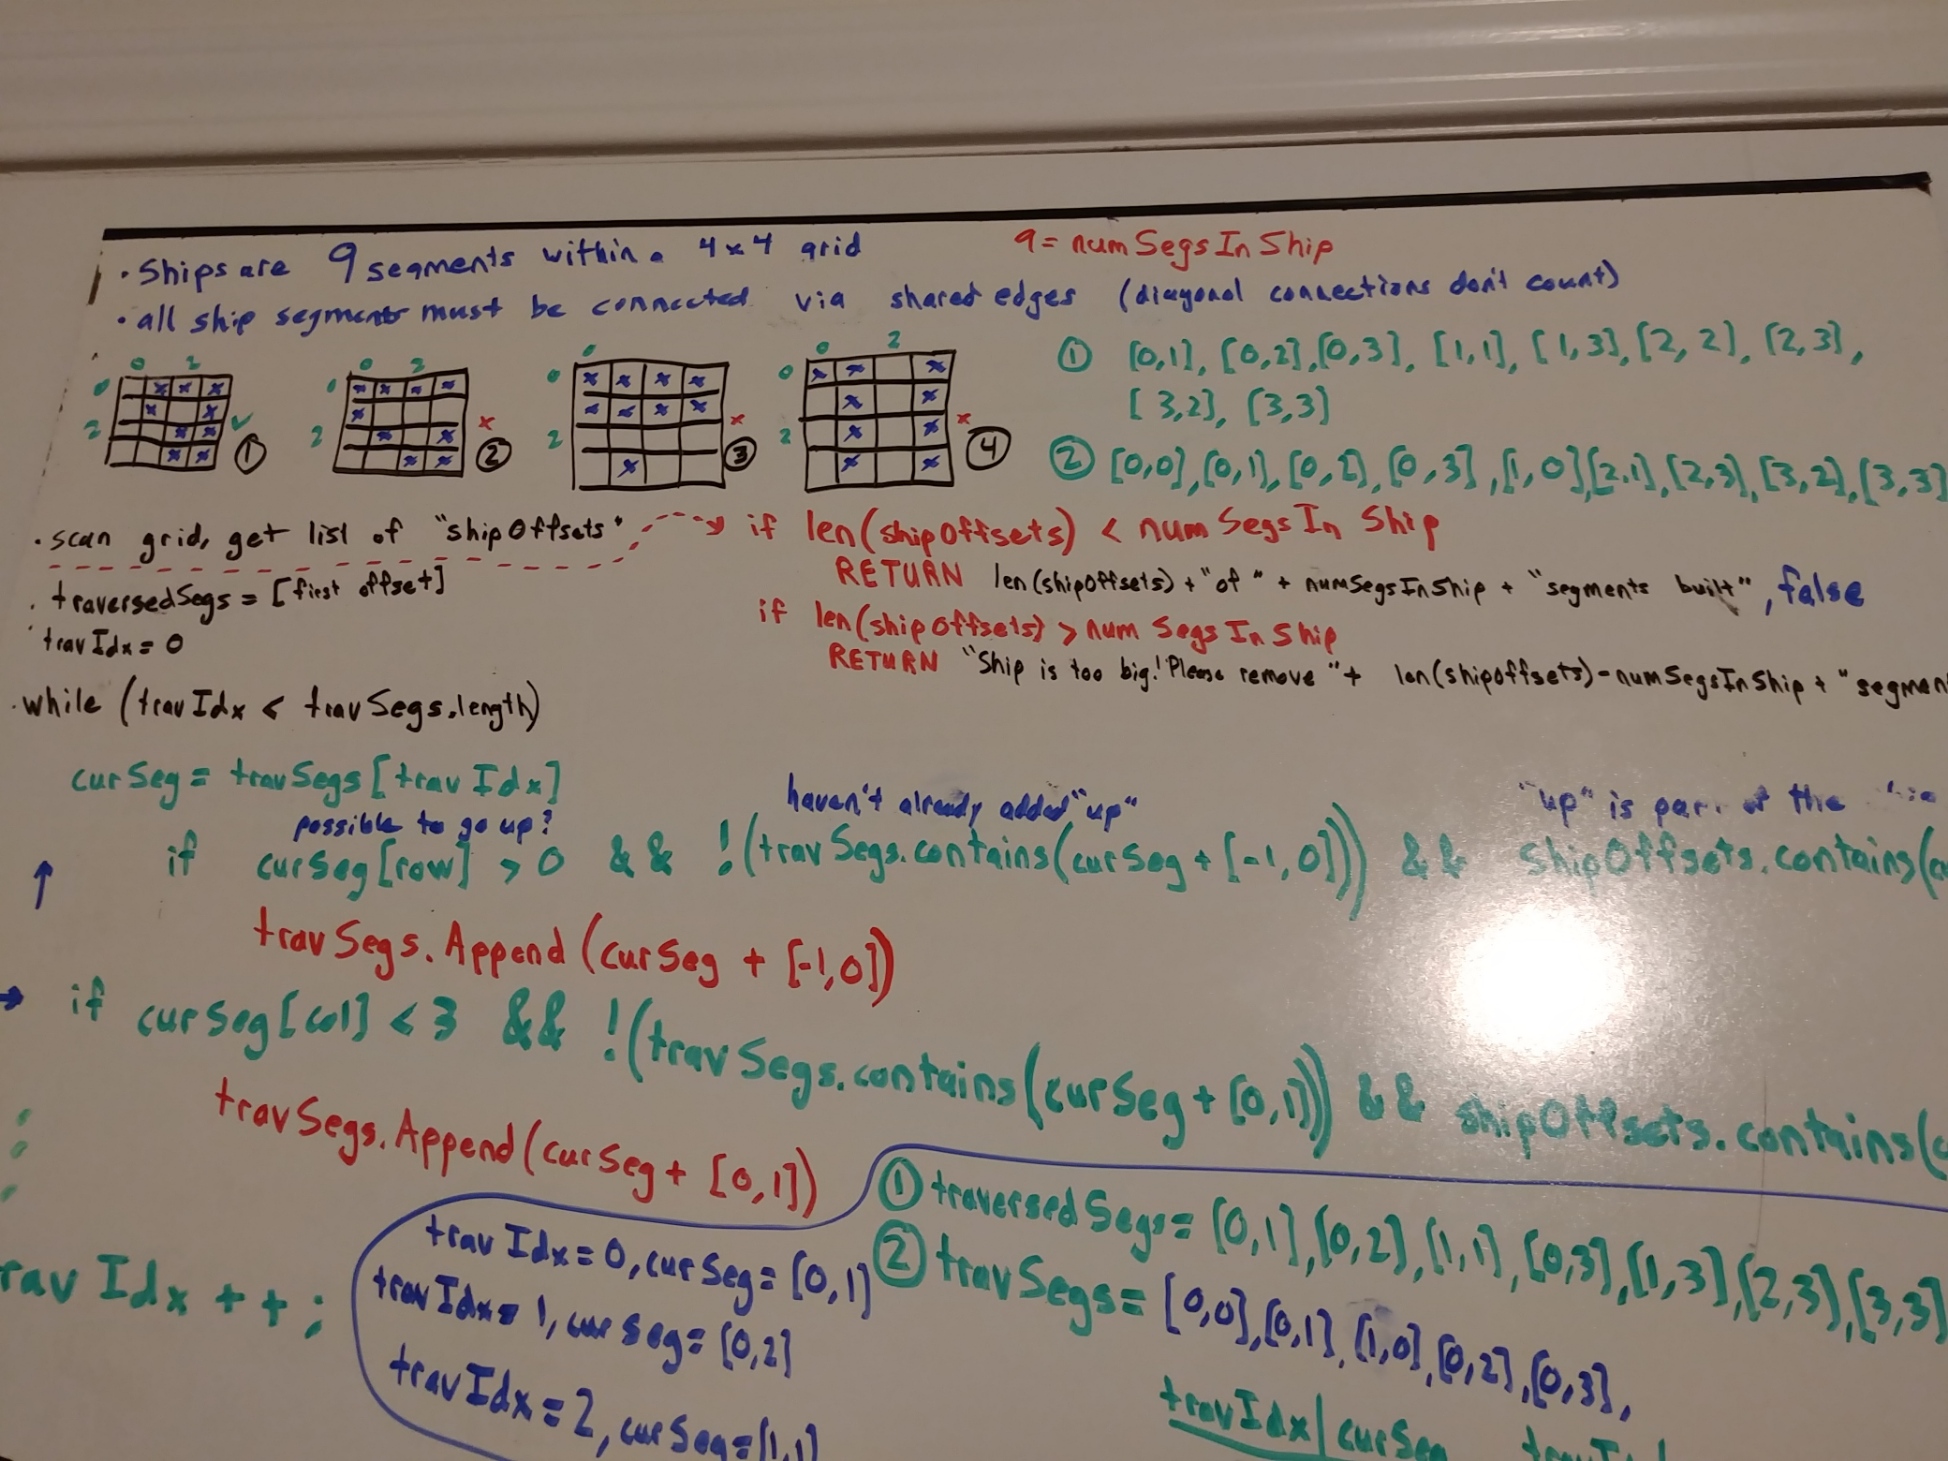 • Ships are 9 segments within a 4x4 grid
9 = numSegsInShip
• all ship segments must be connected via shared edges (diagonal connections don't count)
0 2
0 2
0
0 2
0
2
0
2
0
2
0
2
✓ ①
x ②
x ③
x ④
① [0,1], [0,2], [0,3], [1,1], [1,3], [2,2], [2,3],
[3,2], [3,3]
② [0,0], [0,1], [0,2], [0,3], [1,0], [2,1], [2,3], [3,2], [3,3]
• scan grid, get list of "shipOffsets"
if len(shipOffsets) < numSegsInShip
RETURN len(shipOffsets) + "of" + numSegsInShip + "segments built", false
• traversedSegs = [first offset]
• travIdx = 0
if len(shipOffsets) > numSegsInShip
RETURN "Ship is too big! Please remove " + len(shipoffsets) - numSegsInShip + "segmen
• while (travIdx < travSegs.length)
curSeg = travSegs[travIdx]
possible to go up?
haven't already added "up"
"up" is part of the
↑ if curSeg[row] > 0 && !(travSegs.contains(curSeg + [-1,0])) && shipOffsets.contains(
travSegs.Append(curSeg + [-1,0])
→ if curSeg[col] < 3 && !(travSegs.contains(curSeg + [0,1])) && shipOffsets.contains(
travSegs.Append(curSeg + [0,1])
ravIdx++;
travIdx = 0, curSeg = [0,1]
travIdx = 1, curSeg = [0,2]
travIdx = 2, curSeg = [1,1]
① traversedSegs = [0,1], [0,2], [1,1], [0,3], [1,3], [2,3], [3,3]
② travSegs = [0,0], [0,1], [1,0], [0,2], [0,3],
travIdx | curSeg